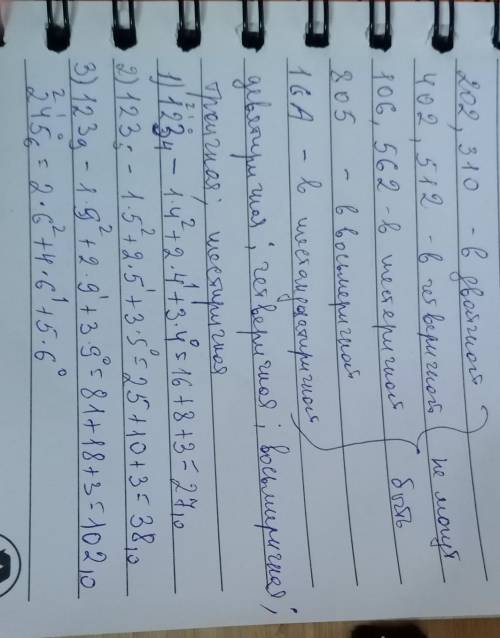 202, 310 - в двоичной
402, 512 - в четверичной не могут
106, 562 - в шестеричной быть
805 - в восьмеричной
16A - в шестандцатиричной
девятиричная; четверичная; восьмиричная;
троичная; шестиричная
1) 1²2¹3⁰₄ - 1·4²+2·4¹+3·4⁰=16+8+3=27₁₀
2) 123₅ - 1·5²+2·5¹+3·5⁰=25+10+3=38₁₀
3) 123₉ - 1·9²+2·9¹+3·9⁰=81+18+3=102₁₀
2²4¹5⁰₆ = 2·6²+4·6¹+5·6⁰